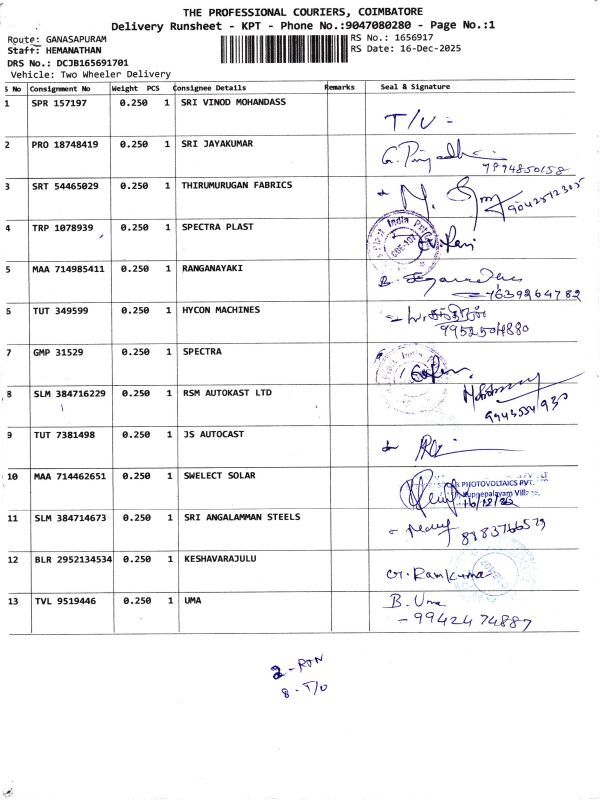 THE PROFESSIONAL COURIERS, COIMBATORE
Delivery Runsheet - KPT - Phone No.:9047080280 - Page No.:1
Route: GANASAPURAM
RS No.: 1656917
Staff: HEMANATHAN
RS Date: 16-Dec-2025
DRS No.: DCJB165691701
Vehicle: Two Wheeler Delivery
S No Consignment No Weight PCS Consignee Details Remarks Seal & Signature
1 SPR 157197 0.250 1 SRI VINOD MOHANDASS
T/U =
2 PRO 18748419 0.250 1 SRI JAYAKUMAR
7994850158
3 SRT 54465029 0.250 1 THIRUMURUGAN FABRICS
4 TRP 1078939 0.250 1 SPECTRA PLAST
India
5 MAA 714985411 0.250 1 RANGANAYAKI
7639264782
6 TUT 349599 0.250 1 HYCON MACHINES
9952504880
7 GMP 31529 0.250 1 SPECTRA
India
8 SLM 384716229 0.250 1 RSM AUTOKAST LTD
9943554930
9 TUT 7381498 0.250 1 JS AUTOCAST
10 MAA 714462651 0.250 1 SWELECT SOLAR
PHOTOVOLTAICS PVT. LT
Kuppepalayam Village,
16/12/25
11 SLM 384714673 0.250 1 SRI ANGALAMMAN STEELS
8883766529
12 BLR 2952134534 0.250 1 KESHAVARAJULU
G. Ramkumar
13 TVL 9519446 0.250 1 UMA
B. Uma
- 9942474887
2 - RTN
8 - T/U